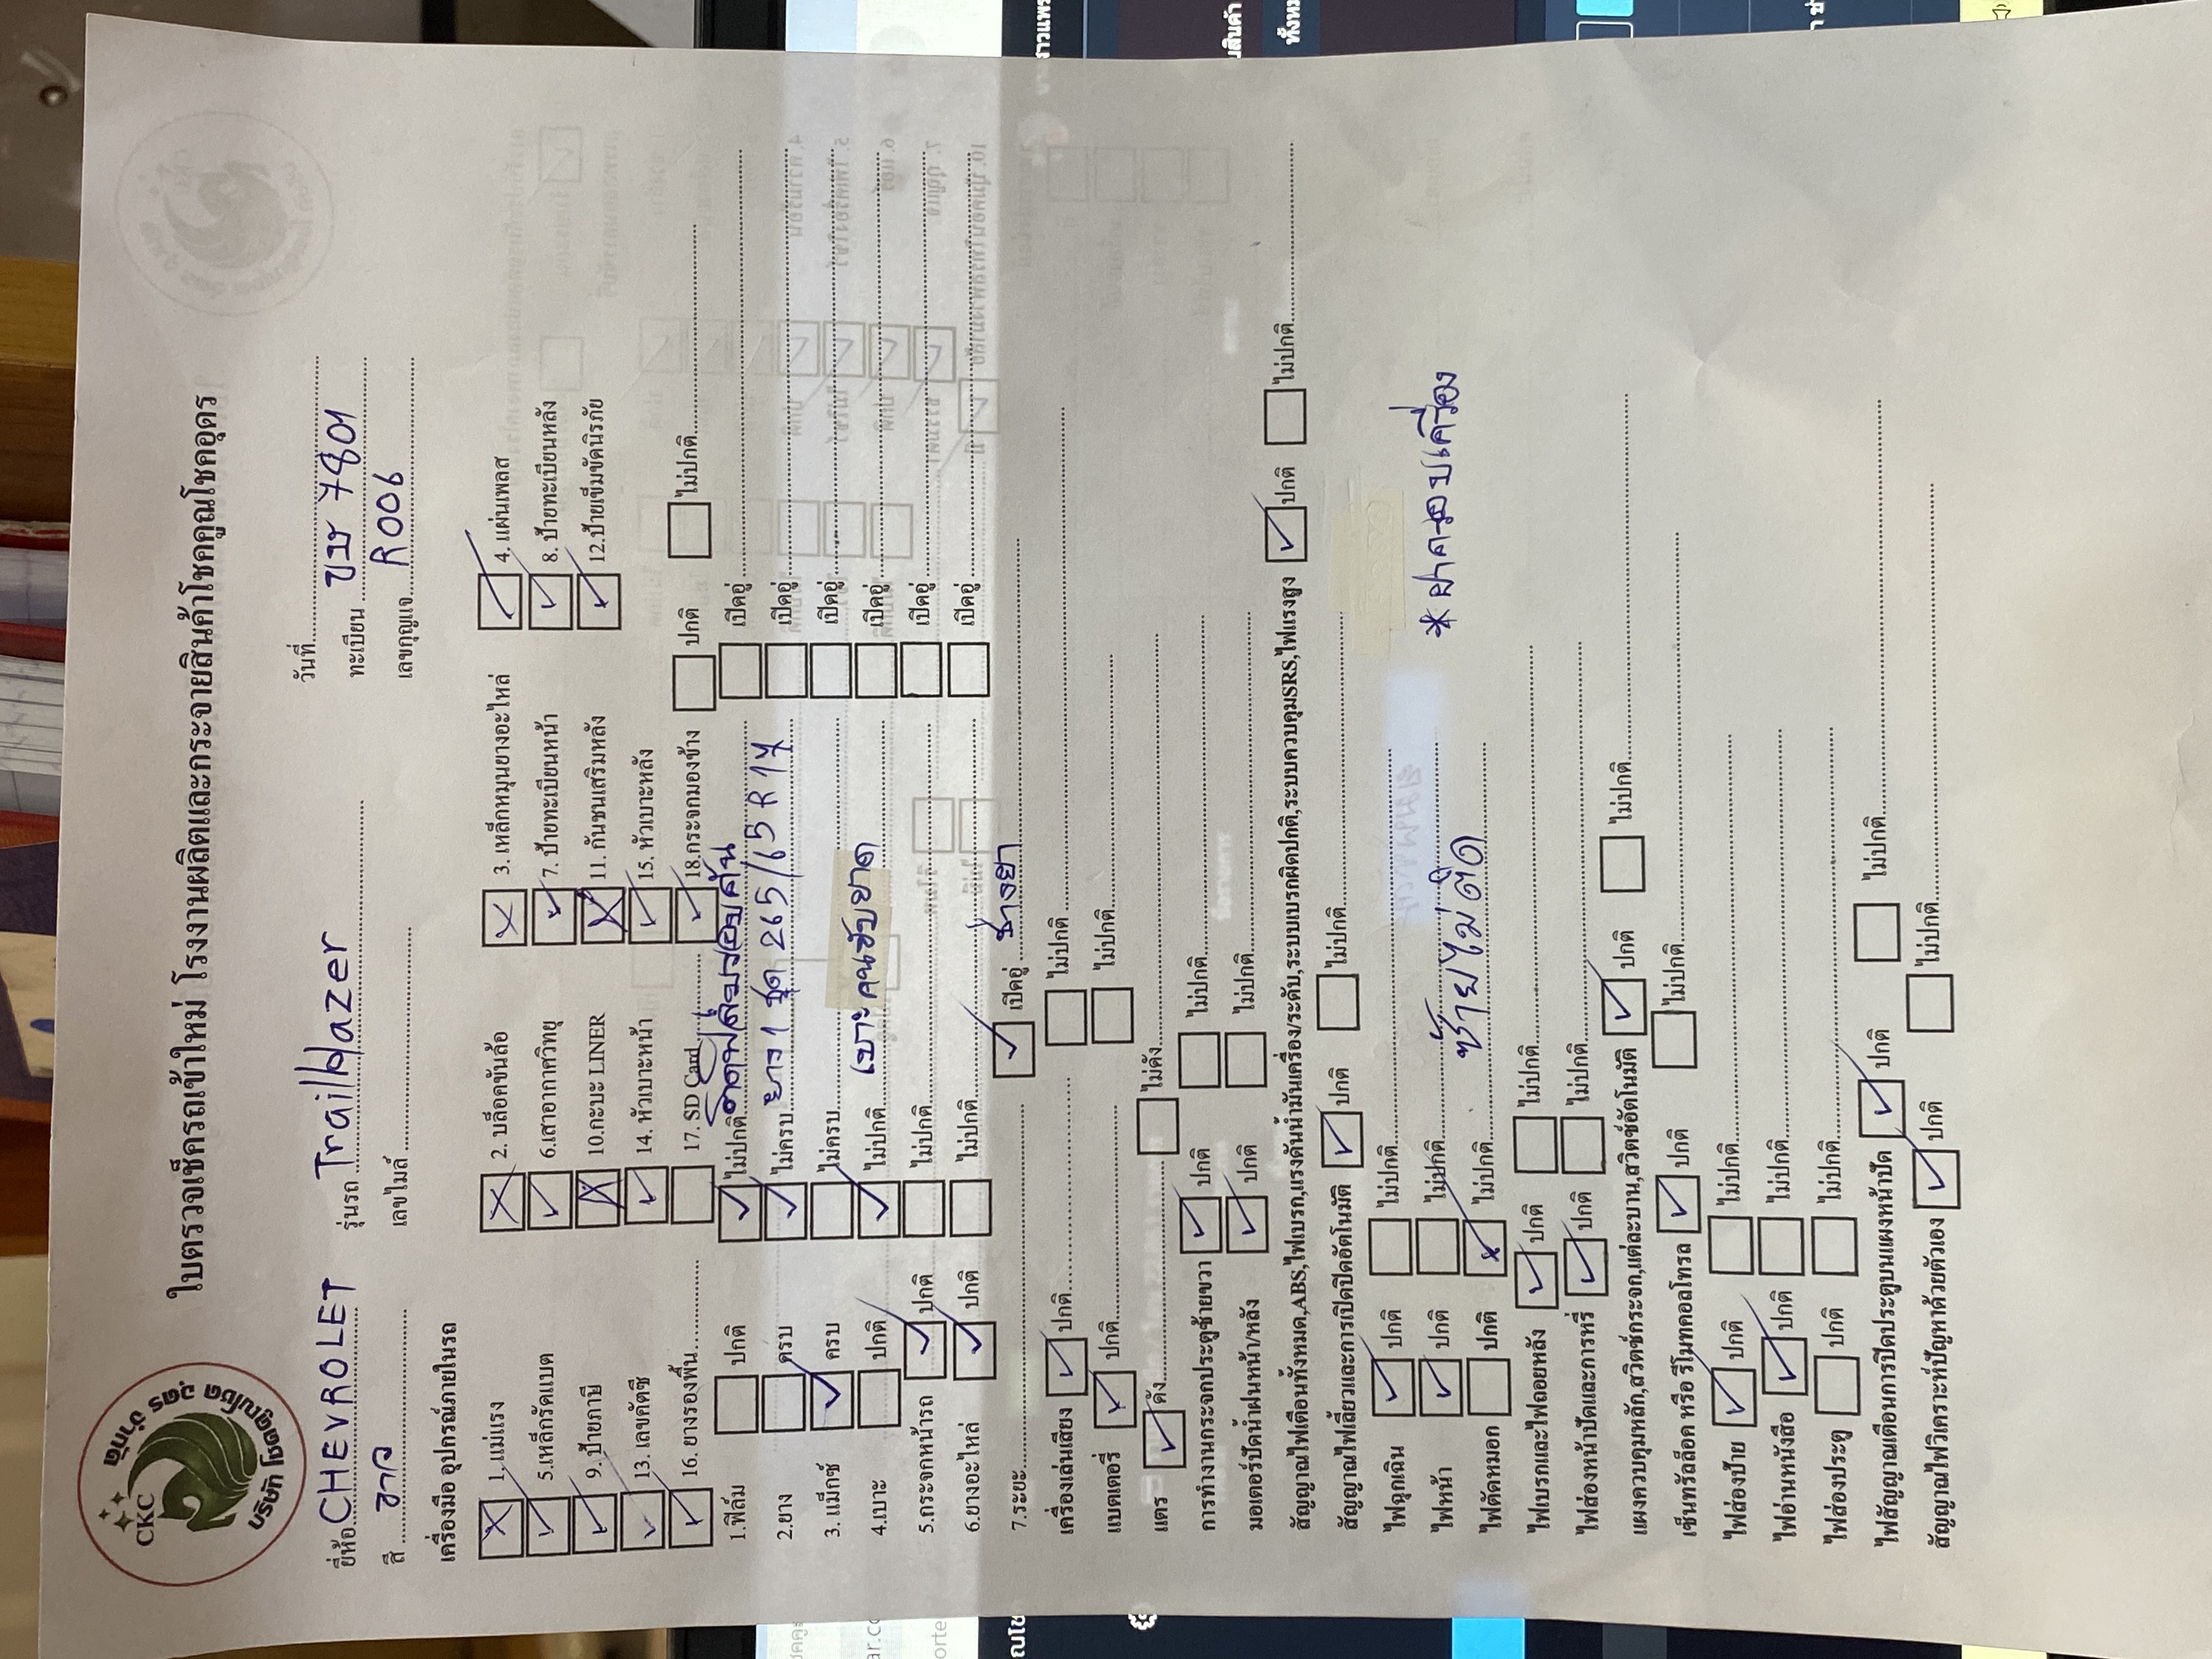 บริษัท โชคคูณโชค อุดร จำกัด
CKC
ใบตรวจเช็ครถเข้าใหม่ โรงงานผลิตและกระจายสินค้าโชคคูณโชคอุดร
วันที่
ยี่ห้อ CHEVROLET รุ่นรถ Trailblazer ทะเบียน ขษ 7801
สี ขาว เลขไมล์ เลขกุญแจ R006
เครื่องมือ อุปกรณ์ภายในรถ
1.แม่แรง 2. บล็อคขันล้อ 3. เหล็กหมุนยางอะไหล่ 4. แผ่นเพลส
5.เหล็กรัดแบต 6.เสาอากาศวิทยุ 7. ป้ายทะเบียนหน้า 8. ป้ายทะเบียนหลัง
9.ป้ายภาษี 10.กะบะ LINER 11. กันชนเสริมหลัง 12.ป้ายเข็มขัดนิรภัย
13. เลขคัตซี 14. หัวเบาะหน้า 15. หัวเบาะหลัง
16. ยางรองพื้น 17. SD Card 18.กระจกมองข้าง ปกติ ไม่ปกติ
1.ฟิล์ม ปกติ ไม่ปกติ เบิคอู่
2.ยาง ครบ ไม่ครบ ยาง 1 ชุด 265/65 R 17 เบิคอู่
3. แม็กซ์ ครบ ไม่ครบ เบิคอู่
4.เบาะ ปกติ ไม่ปกติ เบาะคนขับขาด เบิคอู่
5.กระจกหน้ารถ ปกติ ไม่ปกติ เบิคอู่
6.ยางอะไหล่ ปกติ ไม่ปกติ เบิคอู่
7.ระยะ เบิคอู่ ช่างยา
เครื่องเล่นเสียง ปกติ ไม่ปกติ
แบตเตอรี่ ปกติ ไม่ปกติ
แตร ดัง ไม่ดัง
การทำงานกระจกประตูซ้ายขวา ปกติ ไม่ปกติ
มอเตอร์ปัดน้ำฝนหน้า/หลัง ปกติ ไม่ปกติ
สัญญาณไฟเตือนทั้งหมด,ABS,ไฟเบรก,แรงดันน้ำมันเครื่อง/ระดับ,ระบบเบรกผิดปกติ,ระบบควบคุมSRS,ไฟแรงสูง ปกติ ไม่ปกติ
สัญญาณไฟเลี้ยวและการเปิดปิดอัตโนมัติ ปกติ ไม่ปกติ
ไฟฉุกเฉิน ปกติ ไม่ปกติ
ไฟหน้า ปกติ ไม่ปกติ * ฝาครอบเครื่อง
ไฟตัดหมอก ปกติ ไม่ปกติ ซ้ายไม่ติด
ไฟเบรกและไฟถอยหลัง ปกติ ไม่ปกติ
ไฟส่องหน้าปัดและการหรี่ ปกติ ไม่ปกติ
แผงควบคุมหลัก,สวิตช์กระจก,แต่ละบาน,สวิตช์อัตโนมัติ ปกติ ไม่ปกติ
เซ็นทรัลล็อค หรือ รีโมทคอลโทรล ปกติ ไม่ปกติ
ไฟส่องป้าย ปกติ ไม่ปกติ
ไฟอ่านหนังสือ ปกติ ไม่ปกติ
ไฟส่องประตู ปกติ ไม่ปกติ
ไฟสัญญาณเตือนการปิดประตูบนแผงหน้าปัด ปกติ ไม่ปกติ
สัญญาณไฟวิเคราะห์ปัญหาด้วยตัวเอง ปกติ ไม่ปกติ